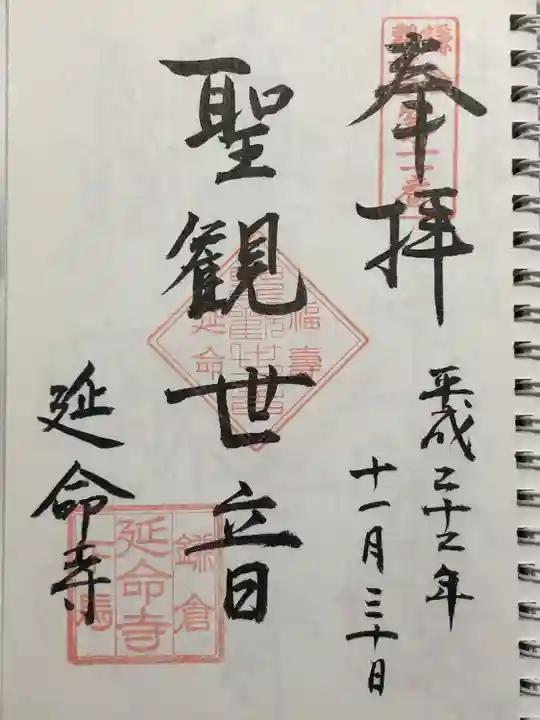 奉拝
平成二十二年
十一月三十日
聖観世音
延命寺
福壽
延命
鎌倉
延命寺